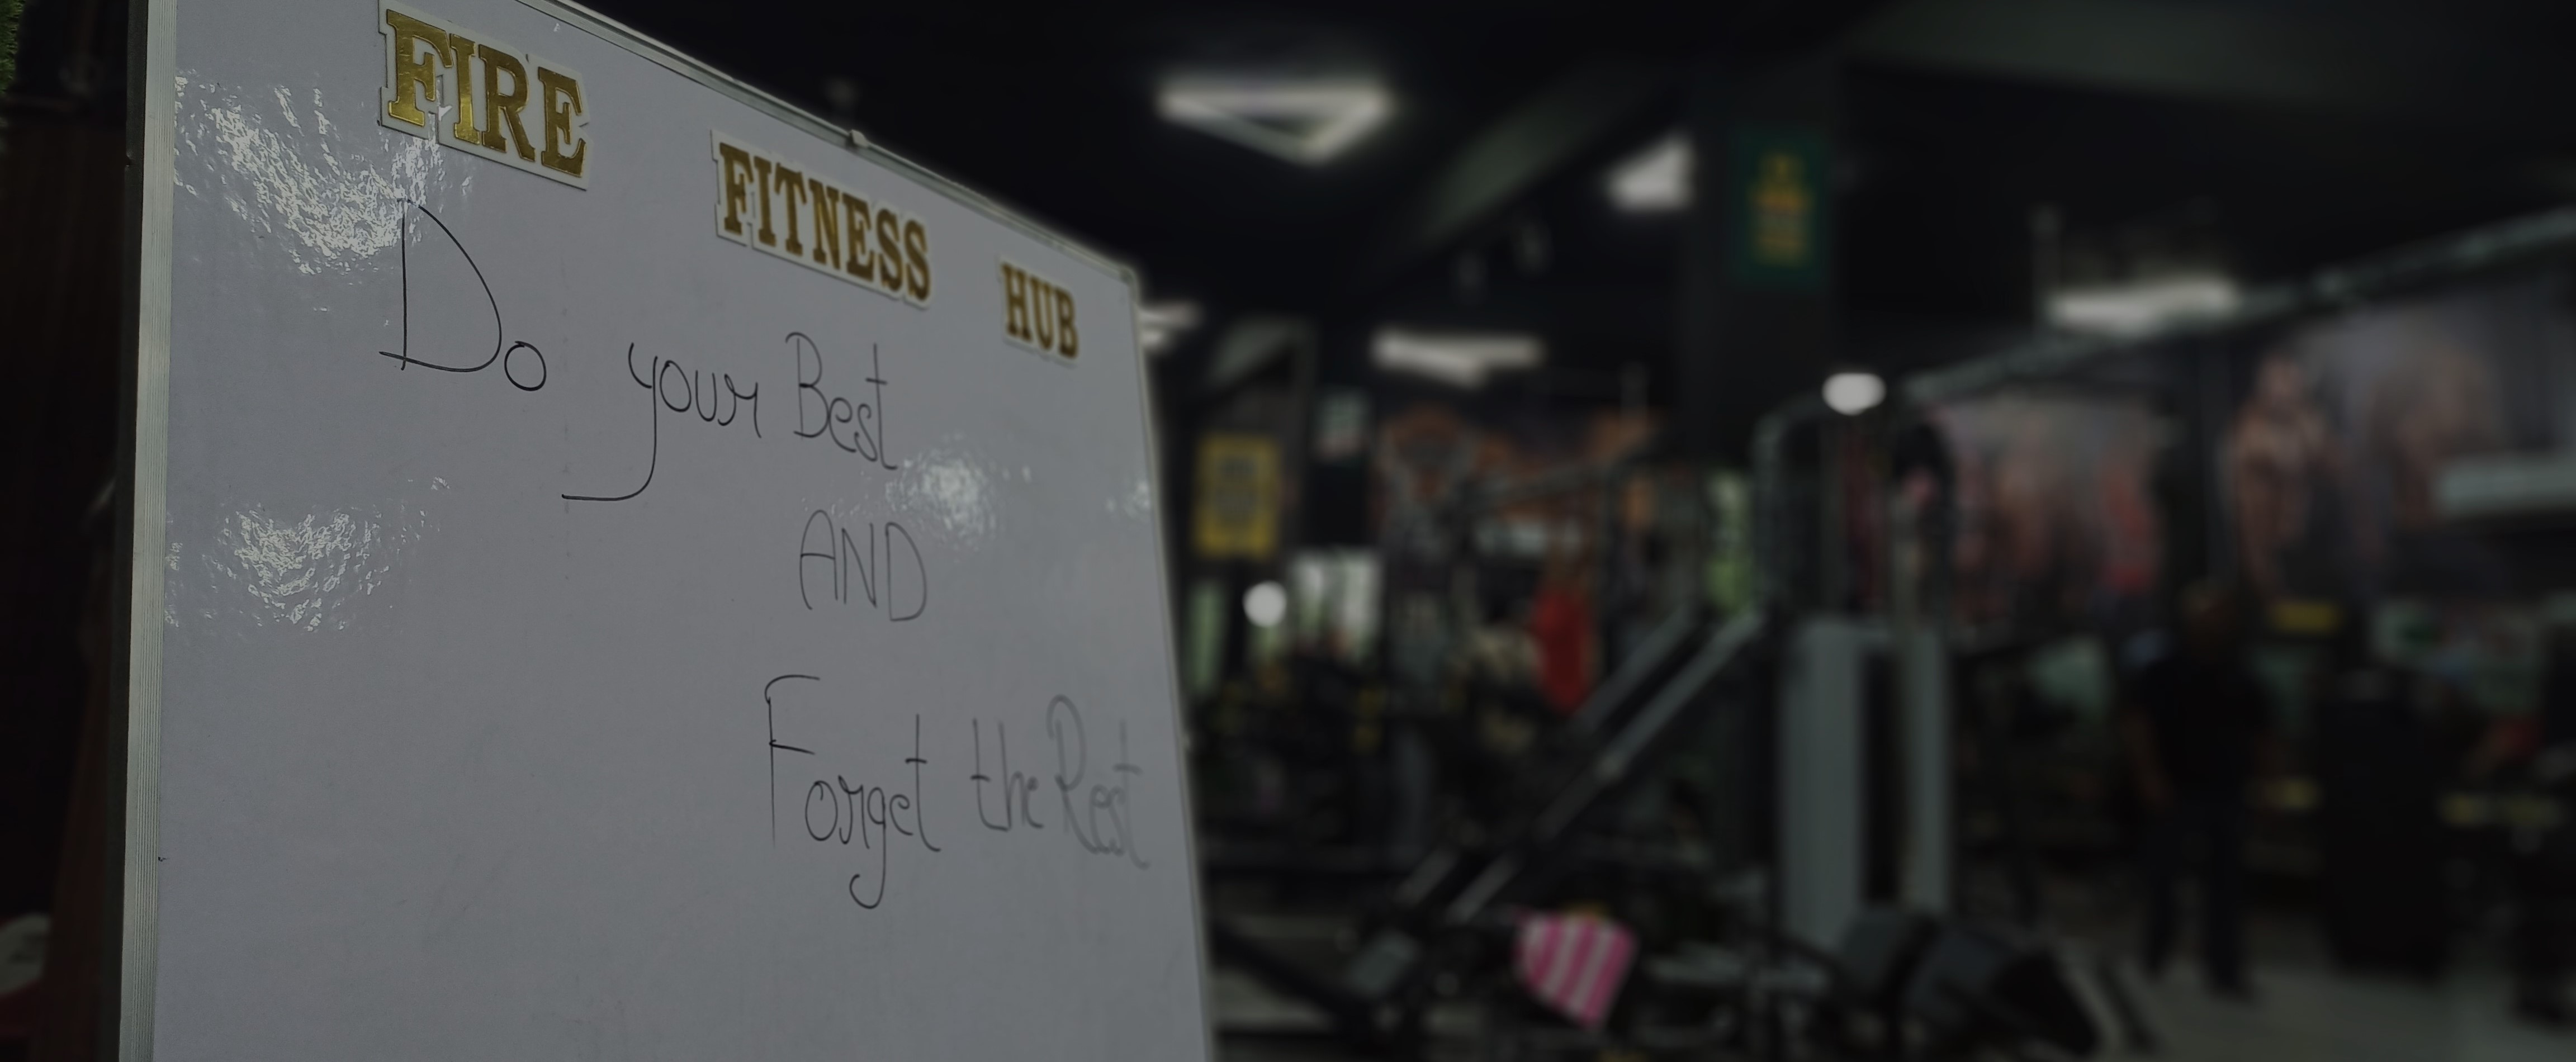 FIRE FITNESS HUB
Do your Best
AND
Forget the Rest